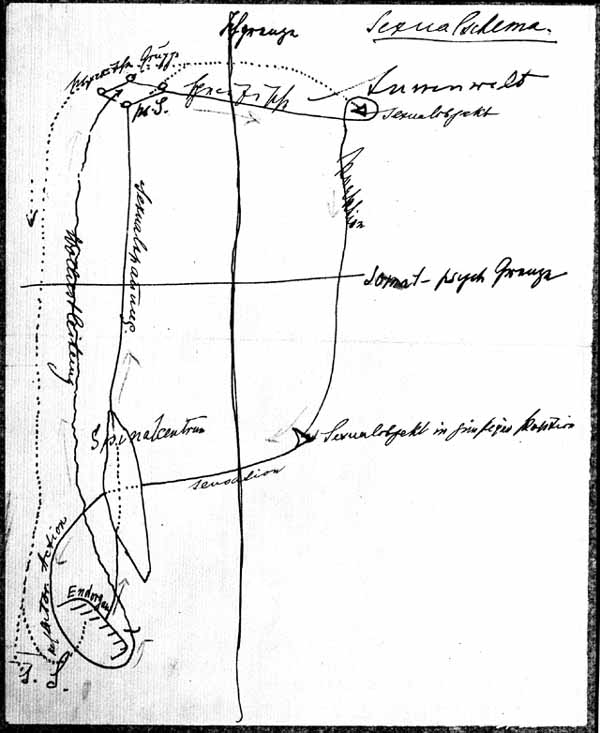 Ichgrenze
Sexualschema.
psychische Gruppe
ps. S.
Aussenwelt
Sexualobjekt
Sexualspannung
Wollustleitung
Somat-psych Grenze
Spinalcentrum
Sexualobjekt in günstiger Position
sensation
Action
Endorgan